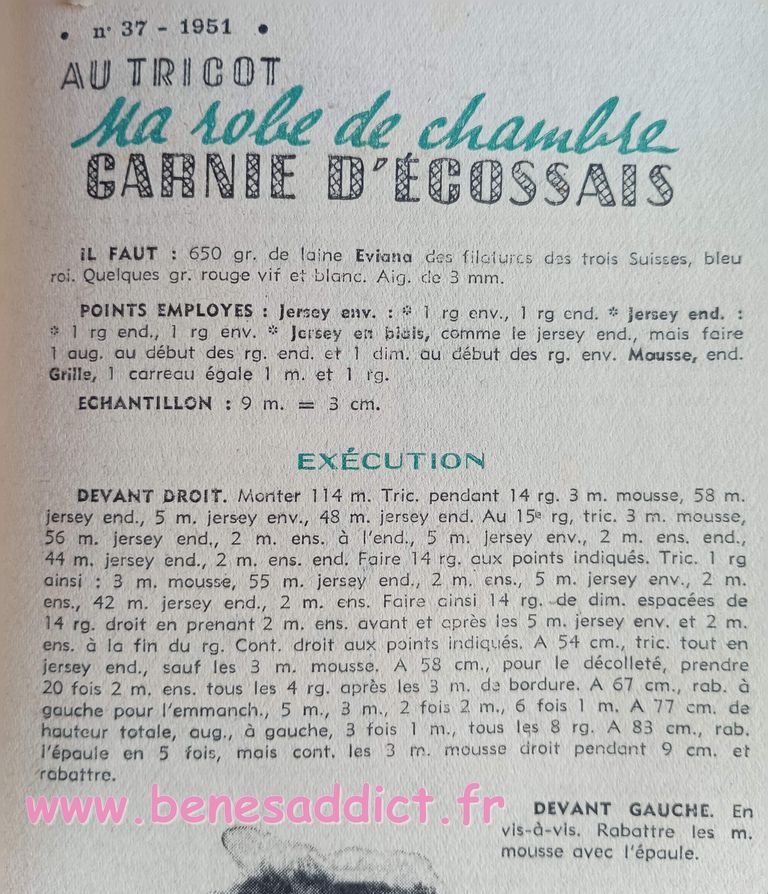 • n° 37 - 1951 •
AU TRICOT
Ma robe de chambre
GARNIE D'ÉCOSSAIS
iL FAUT : 650 gr. de laine Eviana des filatures des trois Suisses, bleu
roi. Quelques gr. rouge vif et blanc. Aig. de 3 mm.
POINTS EMPLOYES : Jersey env. : * 1 rg env., 1 rg end. * Jersey end. :
* 1 rg end., 1 rg env. * Jersey en biais, comme le jersey end., mais faire
1 aug. au début des rg. end. et 1 dim. au début des rg. env. Mousse, end.
Grille, 1 carreau égale 1 m. et 1 rg.
ECHANTILLON : 9 m. = 3 cm.
EXÉCUTION
DEVANT DROIT. Monter 114 m. Tric. pendant 14 rg. 3 m. mousse, 58 m.
jersey end., 5 m. jersey env., 48 m. jersey end. Au 15e rg, tric. 3 m. mousse,
56 m. jersey end., 2 m. ens. à l'end., 5 m. jersey env., 2 m. ens. end.,
44 m. jersey end., 2 m. ens. end. Faire 14 rg. aux points indiqués. Tric. 1 rg
ainsi : 3 m. mousse, 55 m. jersey end., 2 m. ens., 5 m. jersey env., 2 m.
ens., 42 m. jersey end., 2 m. ens. Faire ainsi 14 rg. de dim. espacées de
14 rg. droit en prenant 2 m. ens. avant et après les 5 m. jersey env. et 2 m.
ens. à la fin du rg. Cont. droit aux points indiqués. A 54 cm., tric. tout en
jersey end., sauf les 3 m. mousse. A 58 cm., pour le décolleté, prendre
20 fois 2 m. ens. tous les 4 rg. après les 3 m. de bordure. A 67 cm., rab. à
gauche pour l'emmanch., 5 m., 3 m., 2 fois 2 m., 6 fois 1 m. A 77 cm. de
hauteur totale, aug., à gauche, 3 fois 1 m., tous les 8 rg. A 83 cm., rab.
l'épaule en 5 fois, mais cont. les 3 m. mousse droit pendant 9 cm. et
rabattre.
www.benesaddict.fr
DEVANT GAUCHE. En
vis-à-vis. Rabattre les m.
mousse avec l'épaule.